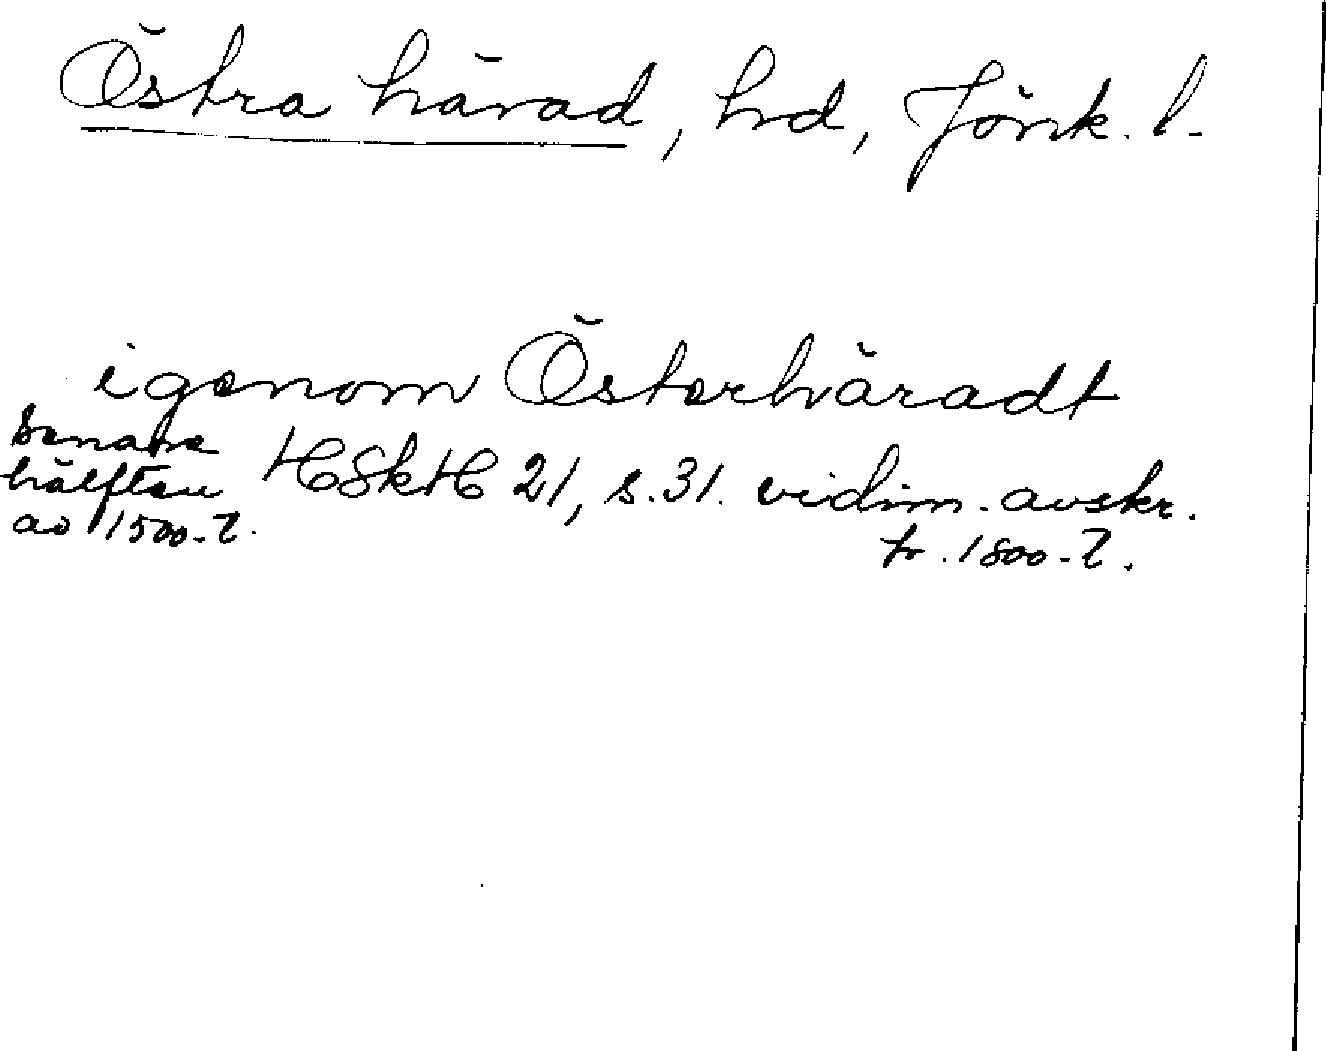 Östra härad, hd, Jönk. l.
igenom Österhäradt
Senare
hälften
av 1500-t.
HSkH 21, s. 31. vidim. avskr.
fr. 1800-t.